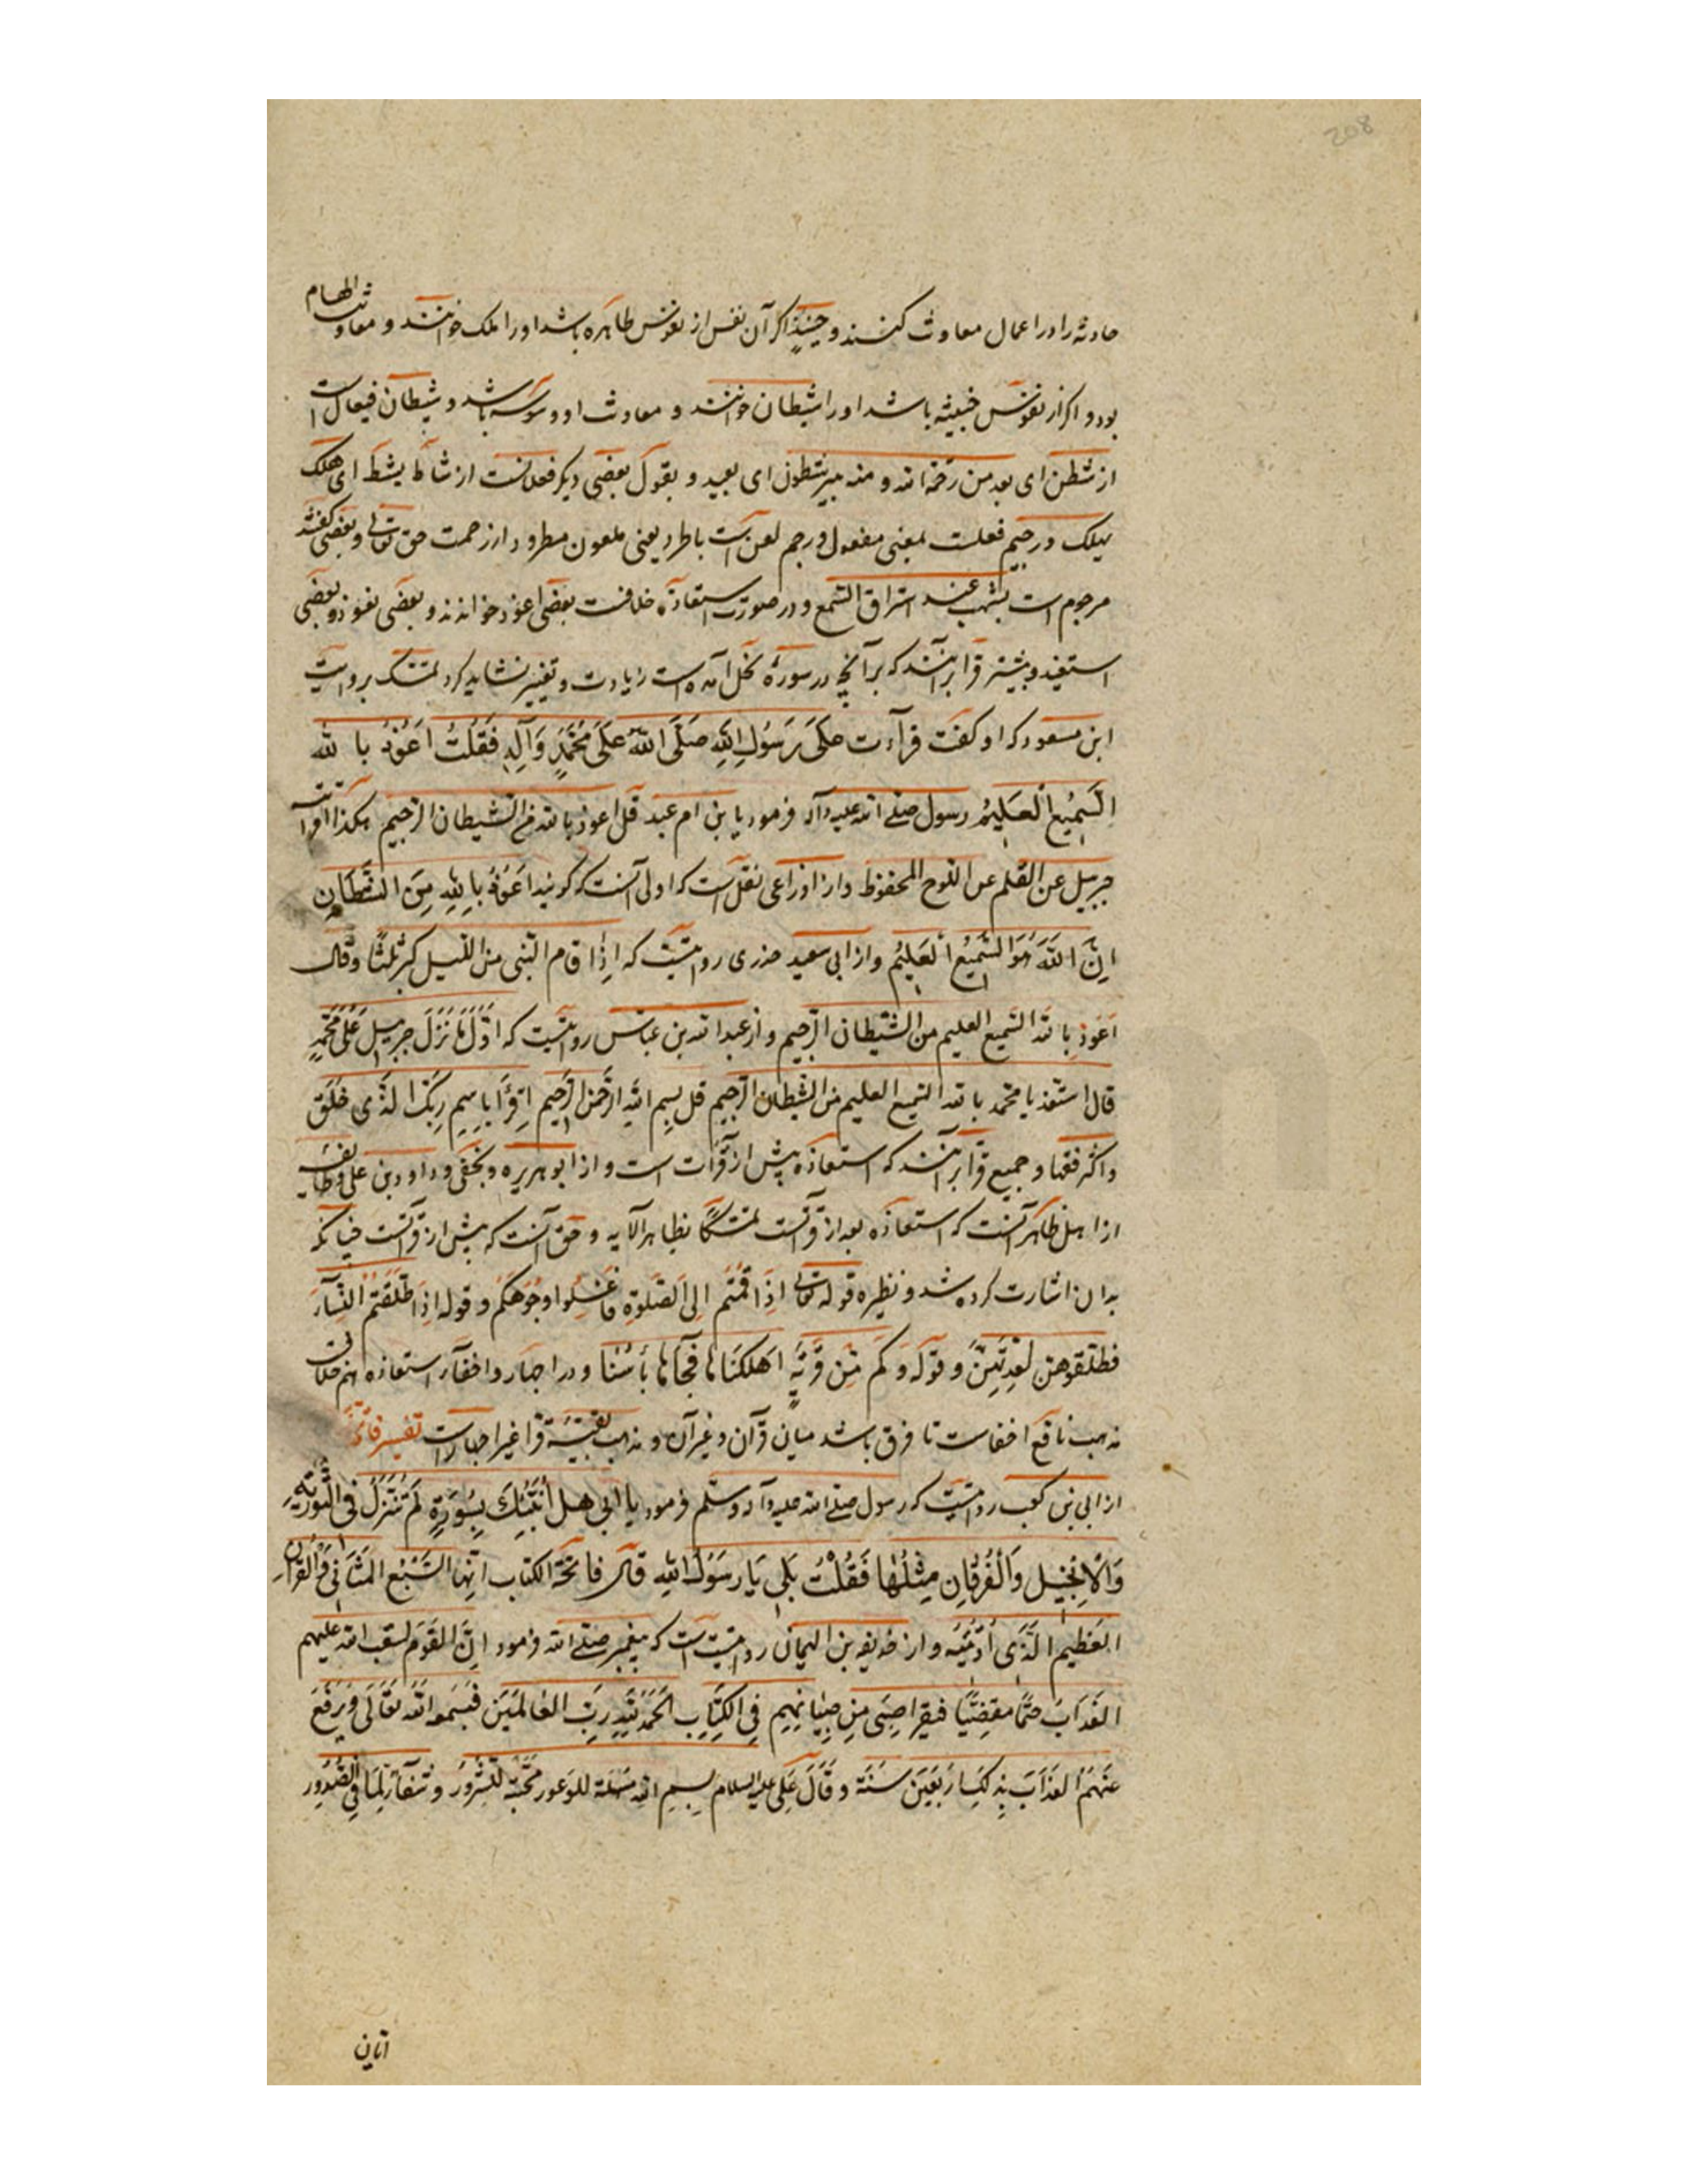 حادثه را در اعمال معاونت کنند و حینئذٍ اگر آن نفس از نفوس طاهره باشد او را ملک خوانند و معاونت الهام
بود و اگر از نفوس خبیثه باشد او را شیطان خوانند و معاونت او وسوسه باشد و شیطان فیعال است
از شطن ای بعد من رحمة الله و منه بیر شطون ای بعید و بقول بعضی دیگر فعلانست از شاط یشط ای هلک
یهلک و رجیم فعلست بمعنی مفعول و رجم لعن است یا طرد یعنی ملعون مطرود از رحمت حق تعالی و بعضی گفته
مرجوم است بشهب عند استراق السمع و در صورت استعاذه خلافست بعضی اعوذ خوانند و بعضی نعوذ و بعضی
استعیذ و بیشتر قرا برآنند که بر آنچه در سورهٔ نحل آمده است زیادت و تغییر نشاید کرد تمسک بروایت
ابن مسعود که او گفت قرآءت علی رَسُولِ اللهِ صَلَّی اللهُ عَلَی مُحَمَّدٍ وَآلِهِ فَقُلْتُ اَعُوْذُ با لله
السَّمِیْعِ الْعَلِیْمُ رسول صلی الله علیه وآله فرمود یا بن ام عبد قل اعوذ بالله من الشیطان الرجیم هکذا اقرانیه
جبرییل عن القلم عن اللوح المحفوظ و از اوزاعی نقل است که اولی آنست که گویند اَعُوْذُ بِاللهِ مِنَ الشَّیْطَانِ
اِنَّ اللهَ هُوَ السَّمِیْعُ الْعَلِیْمُ و از ابی سعید خدری روایتست که اِذَا قام النبی من اللیل کبر ثلثًا وقال
اَعُوذُ بالله السمیع العلیم من الشیطان الرجیم و از عبدالله بن عباس روایتست که اَوَّلُ مَا نَزَلَ جبرییل عَلَی مُحَمَّدٍ
قال استعذ یا محمد بالله السمیع العلیم من الشیطان الرجیم قل بسم الله الرحمن الرحیم اِقْرَأ بِاسْمِ رَبِّکَ الَّذی خَلَقَ
و اکثر فقها و جمیع قرا برآنند که استعاذه پیش از قرآت است و از ابو هریره و نخعی و داود بن علی و طایفه
از اهل ظاهر آنست که استعاذه بعد از قرآتست تمسّکًا بظاهر الآیه و حق آنست که پیش از قرآتست چنانکه
بدان اشارت کرده شد و نظیره قوله تعالی اِذَا قُمْتُم اِلَی الصَّلوةِ فَاغْسِلُوا وُجُوْهَکُم و قوله اِذَا طَلَّقْتُمُ النِّسَآءَ
فطلقوهن لعِدّتِهِنَّ و قوله وَکَم مِّن قَرْیَةٍ اَهْلَکْنَاهَا فَجَآءَهَا بَأسُنَا و در اجهار و اخفآء استعاذه هم خلافست
مذهب نافع اخفاست تا فرق باشد میان قرآن و غیر آن و مذهب بقیهٔ قرا غیر اجهار است تفسیر فاتحه
از ابی بن کعب روایتست که رسول صلی الله علیه وآله وسلم فرمود یا ابی هل اُنَبِّئُکَ بِسُوْرَةٍ لَم تُنَزَّلْ فی التَّوریةِ
وَالْاِنْجِیْلِ وَالْفُرْقَانِ مِثْلُهَا فَقُلْتُ بَلی یَا رَسُوْلَ اللهِ قال فاتحة الکتاب انّها السَّبْعُ المَثَانی وَالْقُرآن
العَظِیم الَّذِی اُوْتِیْتُه و از حذیفه بن الیمان روایتست که پیغمبر صلی الله فرمود اِنَّ القَوْمَ لیبعث الله علیهم
العَذَابَ حَتْمًا مَقْضِیًّا فیقرا صَبِی مِن صِبْیَانِهِم فِی الْکِتَابِ اَلْحَمْدُ لِلّهِ رَبِّ الْعَالَمِیْنَ فَیَسْمَعُ اللهُ تَعَالَی وَیَرْفَعُ
عَنْهُمُ الْعَذَابَ بِذلِکَ اَرْبَعِینَ سَنَة وَقَالَ عَلِی علیه السلام بِسْمِ اللهِ مُسَهِّلة للوُعور مُجَنِّبَة للشُّرُورِ وَشِفَآءٌ لِمَا فِی الصُّدُوْرِ